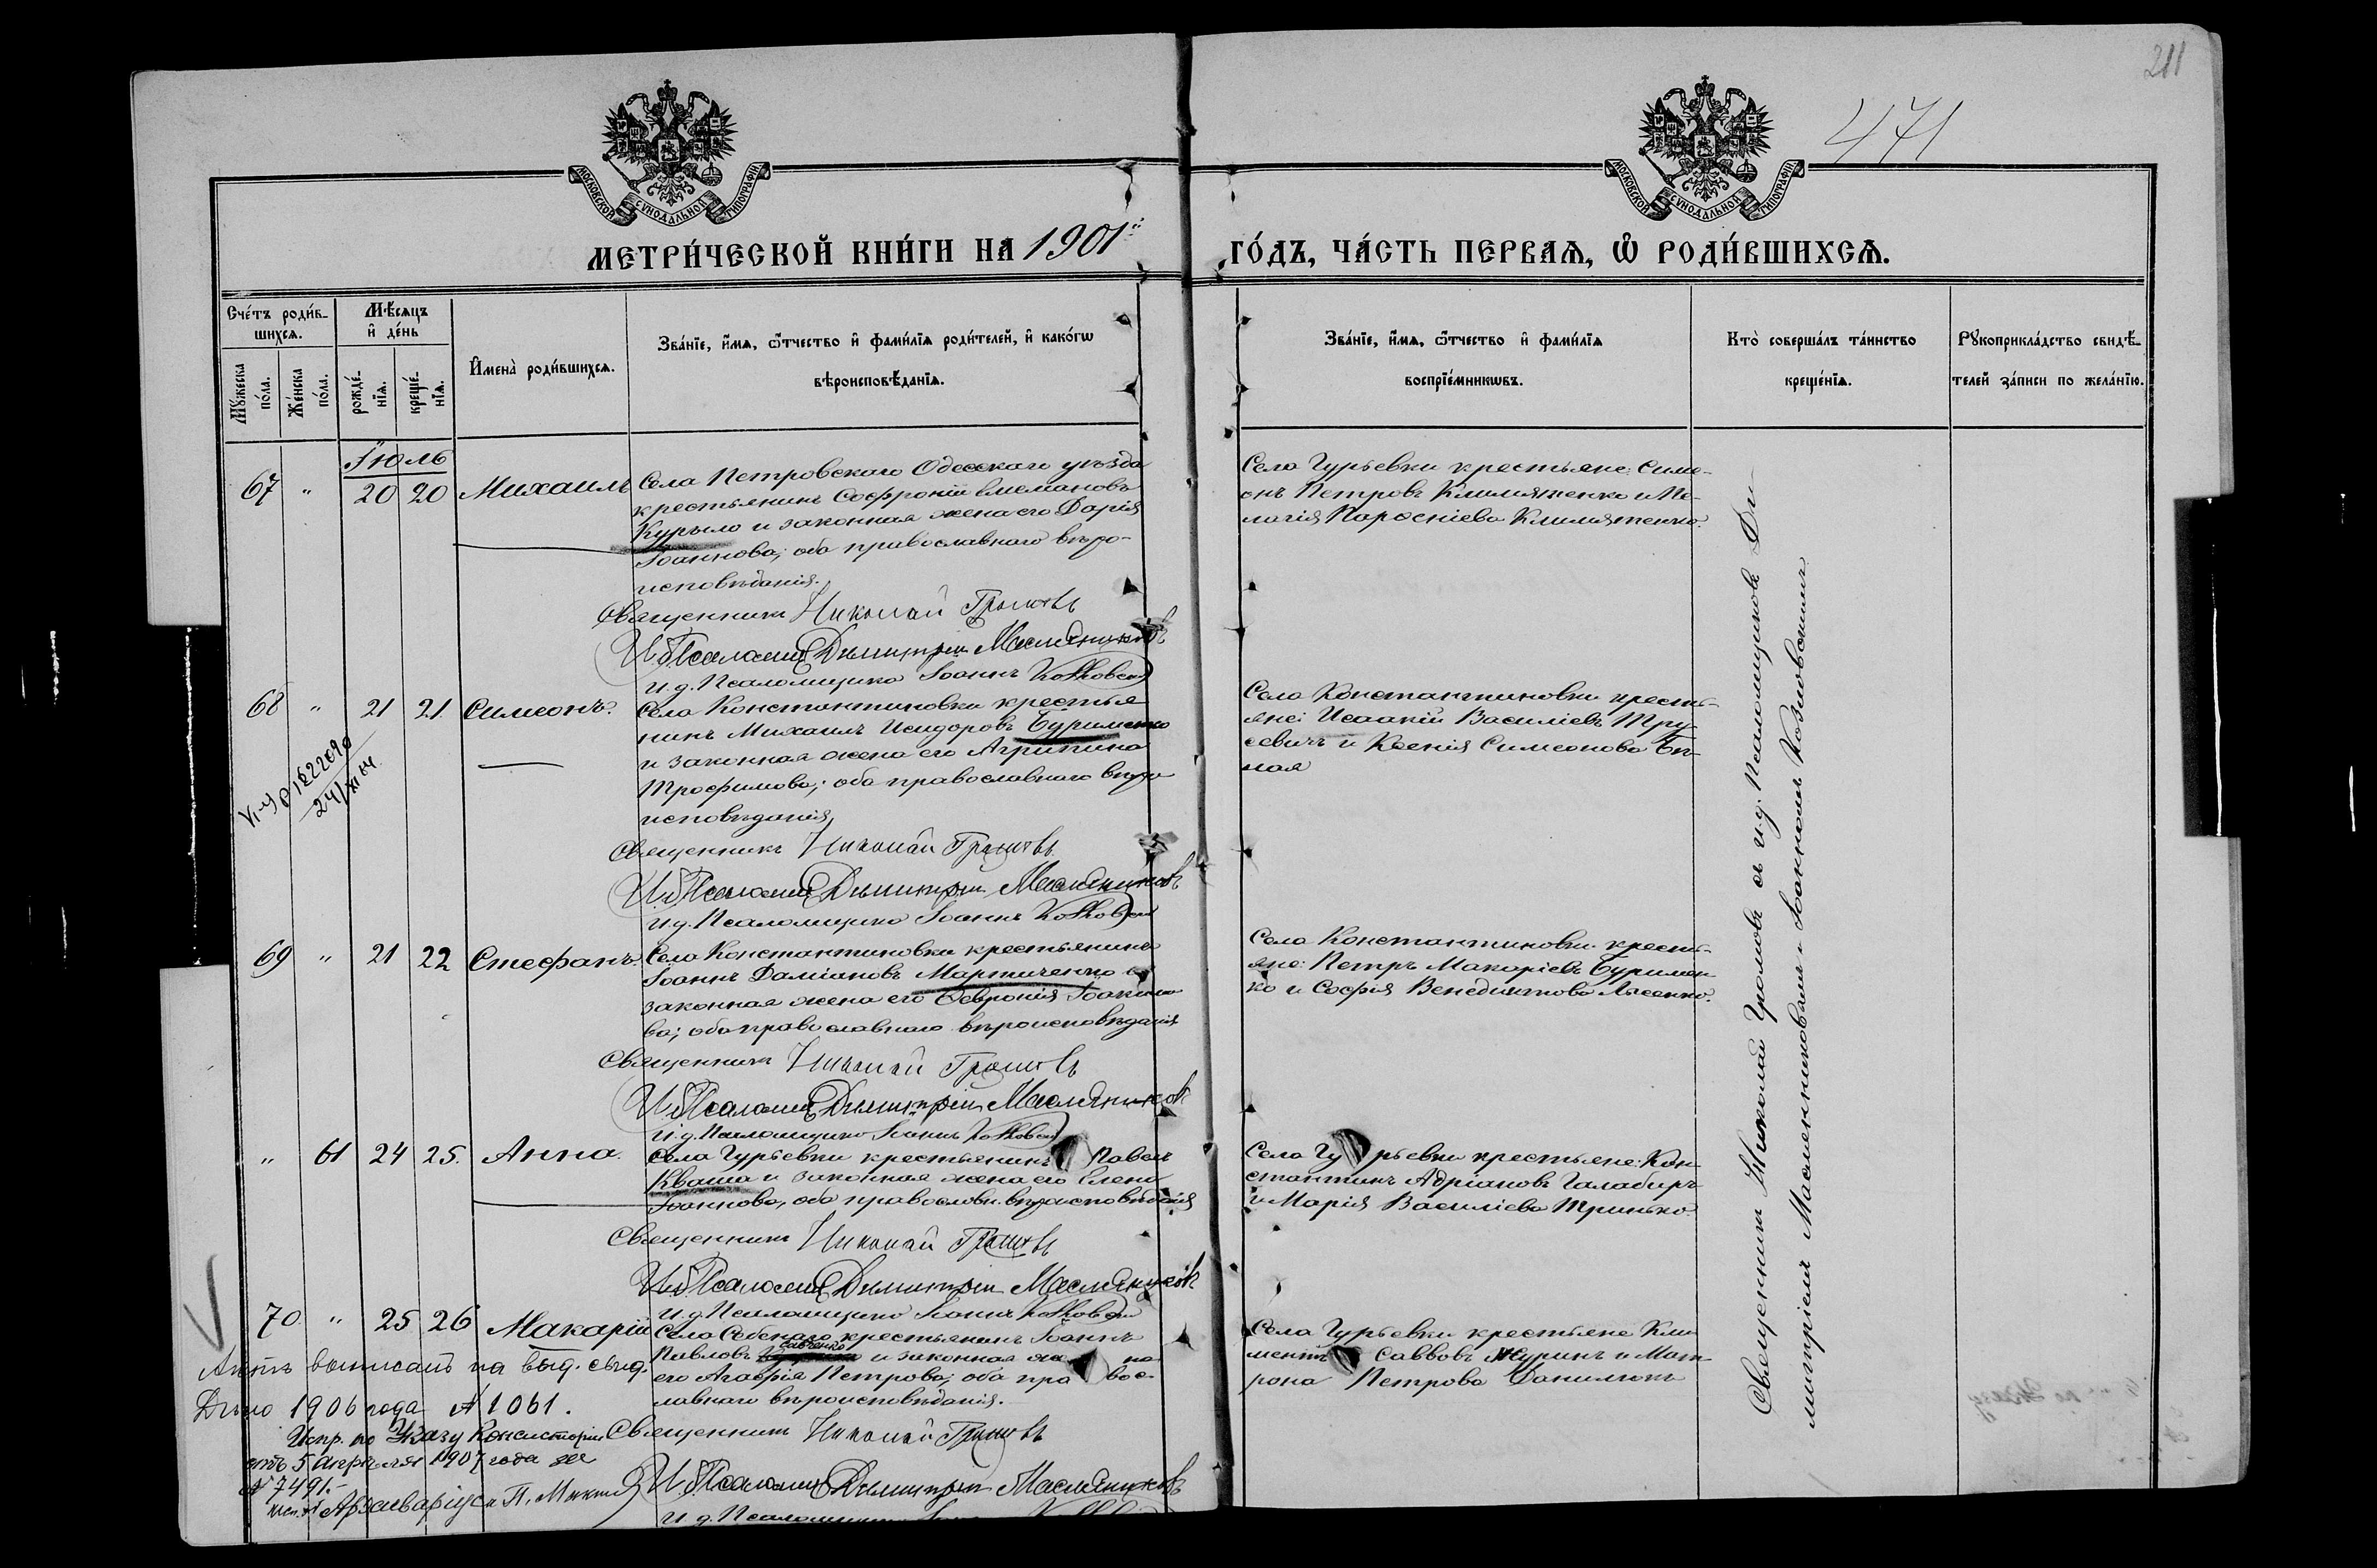 211
471
МОСКОВСКОЙ СѴНОДАЛЬНОЙ ТИПОГРАФІИ
МОСКОВСКОЙ СѴНОДАЛЬНОЙ ТИПОГРАФІИ
МЕТРИ́ЧЕСКОЙ КНИ́ГИ НА 1901й
ГО́ДЪ, ЧА́СТЬ ПЕРВАѦ, Ѡ РОДИ́ВШИХСѦ.
Сче́тъ роди́в-
шихсѧ.
Мꙋ́жеска
по́ла.
Же́нска
по́ла.
Мѣ́сѧцъ
и҆ де́нь
рожде́-
нїѧ.
креще́-
нїѧ.
И҆мена̀ роди́вшихсѧ.
Зва́нїе, и҆́мѧ, ѻ҆́тчество и҆ фами́лїѧ роди́телей, и҆ како́гѡ
вѣроисповѣ́данїѧ.
Зва́нїе, и҆́мѧ, ѻ҆́тчество и҆ фами́лїѧ
воспрїе́мникѡвъ.
Кто̀ соверша́лъ та́инство
креще́нїѧ.
Рꙋкоприкла́дство свидѣ́-
телей за́писи по жела́нїю.
Іюль
67 " 20 20 Михаилъ
Села Петровскаго Одесскаго уѣзда
крестьянинъ Софроній
Курыло и законная жена его Дарія
Іоаннова; оба православнаго вѣро-
исповѣданія.
Священникъ Николай Громовъ
И. д. Псаломщ Димитрій Масленниковъ
И. д. Псаломщика Іоаннъ
Села Гурьевки крестьяне: Симе-
онъ Петровъ Климятенко и Пе-
лагія Климятенко.
68 " 21 21 Симеонъ.
Села Константиновки крестья
нинъ Михаилъ Исидоровъ Буримeнко
и законная жена его Агрипина
Трофимова; оба православнаго вѣро
исповѣданія
Священникъ Николай Громовъ
И. д. Псаломщ Димитрій Масленниковъ
И. д. Псаломщика Іоаннъ
Села Константиновки кресть-
яне: Исаакій Василіевъ Тру-
севичъ и Ксенія Симеонова Бѣ-
лая
24/XI 64
69 " 21 22 Стефанъ.
Села Константиновки крестьянинъ
Іоаннъ Даміановъ Мартиченко и
законная жена его Февронія Іоакимо
ва; оба православнаго вѣроисповѣданія
Священникъ Николай Громовъ
И. д. Псаломщ Димитрій Масленниковъ
И. д. Псаломщика Іоаннъ
Села Константиновки кресть-
яне: Петръ Макаріевъ Буримен
ко и Софія Венедиктова Лысенко.
" 61 24 25. Анна.
Села Гурьевки крестьянинъ Павелъ
Кваша и законная жена его Елена
Іоаннова, оба православн. вѣроисповѣданія
Священникъ Николай Громовъ
И. д. Псаломщ Димитрій Масленниковъ
И. д. Псаломщика Іоаннъ
Села Гурьевки крестьяне: Кон
стантинъ Адріановъ Галабиръ
и Марія Василіева Тринько.
70 " 25 26 Макарій
Села Себенаго крестьянинъ Іоаннъ
Савченко
Павловъ и законная жена
его Агафія Петрова; оба правос-
лавнаго вѣроисповѣданія.
Священникъ Николай Громовъ
И. д. Псаломщ Димитрій Масленниковъ
И. д. Псаломщика
Села Гурьевки крестьяне Кли
ментъ Саввовъ Журинъ и Мат
рона Петрова Данилюкъ
Актъ выписанъ на выд. свид.
Дѣло 1906 года № 1061.
Испр. по Указу Консисторіи
отъ 5 апрѣля 1907 года за
№ 7491.-
Архиваріуса П.
Священникъ Николай Громовъ съ и. д. Псаломщиковъ Ди
митріемъ Масленниковымъ и Іоанномъ Козловскимъ